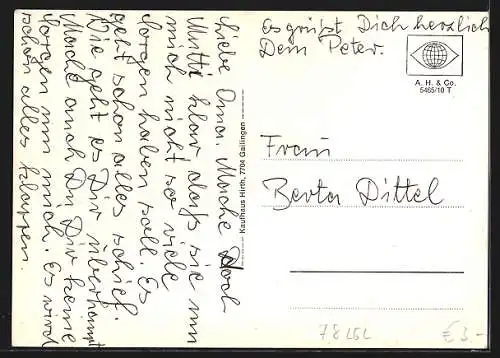 Liebe Oma. Mache doch
Mutti klar daß sie um
mich nicht so viele
Sorgen haben soll. Es
geht schon alles schief.
Wie geht es Dir überhaupt
Mache auch Du Dir keine
Sorgen um mich. Es wird
schon alles klappen.
Es grüßt Dich herzlich
Dein Peter.
A. H. & Co.
5465/10 T
Kaufhaus Hirth, 7704 Gailingen
Frau
Berta Dittel
€ 3.-